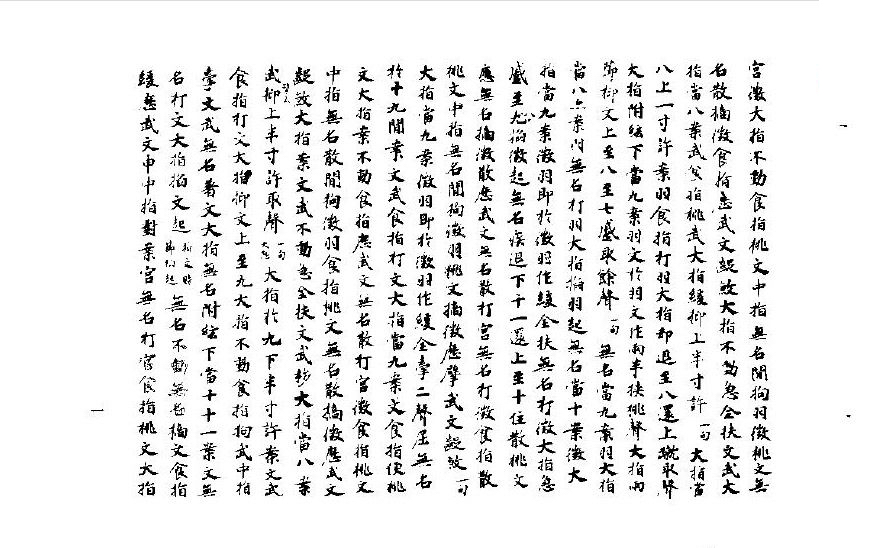 宮徵大指不動食指挑文中指無名間拘羽徵挑文無
名散摘徵食指應武文疑散大指不動急全扶文武大
指當八案武食指挑武大指緩抑上半寸許一句大指當
八上一寸許案羽食指打羽大指却退至八還上取聲
大指附絃下當九案羽文於羽文作兩半扶挑聲大指兩
節抑文上至八至七盛取餘聲一句無名當九案羽大指
當八案無名打羽大指掐羽起無名當十案徵大
指當九案徵羽即於徵羽作緩全扶無名打徵大指急
盛至九掐徵起無名疾退下十一還上至十住散挑文
應無名摘徵散應武文無名散打宮無名打徵食指散
挑文中指無名間拘徵羽挑文摘徵應擘武文疑散一句
大指當九案徵羽即於徵羽作緩全舉二聲屈無名
於十九間案文武食指打文大指當九案文食指便挑
文大指案不動食指應武文無名散打宮徵食指挑文
中指無名散間拘徵羽食指挑文無名散摘徵應武文
疑散大指案文武不動急全扶文武大指當八案
武抑上半寸許取聲一句大指於九下半寸許案文武
食指打文大指抑文上至九大指不動食指拘武中指
文武無名著文大指無名附絃下當十十一案文無
名打文大指掐文起無名不動無名摘文食指
緩應武文中指對案宮無名打宮食指挑文大指